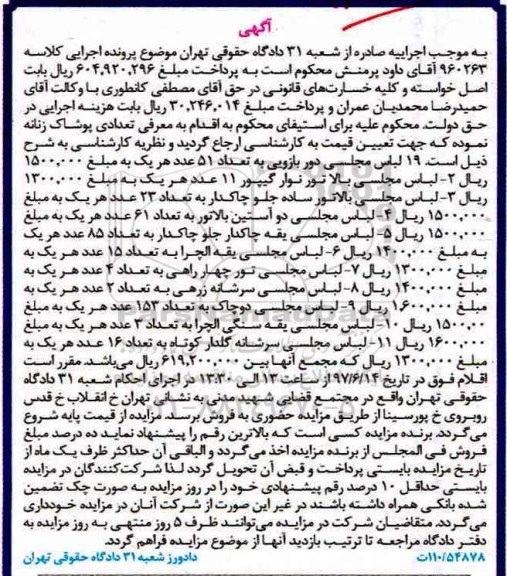 آگهی
به موجب اجراییه صادره از شعبه ۳۱ دادگاه حقوقی تهران موضوع پرونده اجرایی کلاسه
۹۶۰۲۶۳ آقای داود پرمنش محکوم است به پرداخت مبلغ ۶۰۴,۹۲۰,۲۹۶ ریال بابت
اصل خواسته و کلیه خسارت‌های قانونی در حق آقای مصطفی کانطوری با وکالت آقای
حمیدرضا محمدیان عمران و پرداخت مبلغ ۳۰,۲۴۶,۰۱۴ ریال بابت هزینه اجرایی در
حق دولت. محکوم علیه برای استیفای محکوم به اقدام به معرفی تعدادی پوشاک زنانه
نموده که جهت تعیین قیمت به کارشناسی ارجاع گردید و نظریه کارشناسی به شرح
ذیل است. ۱۹ لباس مجلسی دور بازویی به تعداد ۵۱ عدد هر یک به مبلغ ۱۵۰۰,۰۰۰
ریال ۲- لباس مجلسی بالا تور نوار گیپور ۱۱ عدد هر یک به مبلغ ۱۳۰۰,۰۰۰
ریال ۳- لباس مجلسی بالاتور ساده جلو چاکدار به تعداد ۲۳ عدد هر یک به مبلغ
۱۵۰۰,۰۰۰ ریال ۴- لباس مجلسی دو آستین بالاتور به تعداد ۶۱ عدد هر یک به مبلغ
۱۵۰۰,۰۰۰ ریال ۵- لباس مجلسی یقه چاکدار جلو چاکدار به تعداد ۸۵ عدد هر یک
به مبلغ ۱۴۰۰,۰۰۰ ریال ۶- لباس مجلسی یقه الجرا به تعداد ۱۵ عدد هر یک به
مبلغ ۱۳۰۰,۰۰۰ ریال ۷- لباس مجلسی تور چهار راهی به تعداد ۴ عدد هر یک به
مبلغ ۱۴۰۰,۰۰۰ ریال ۸- لباس مجلسی سرشانه زرهی به تعداد ۲ عدد هر یک به
مبلغ ۱,۶۰۰,۰۰۰ ریال ۹- لباس مجلسی دوچاک به تعداد ۱۵۳ عدد هر یک به مبلغ
۱۵۰۰,۰۰۰ ریال ۱۰- لباس مجلسی یقه سنگی الجرا به تعداد ۳ عدد هر یک به مبلغ
۱۶۰۰,۰۰۰ ریال ۱۱- لباس مجلسی سرشانه گلدار کوتاه به تعداد ۱۶ عدد هر یک به
مبلغ ۱۳۰۰,۰۰۰ ریال که مجمع آنها بین ۶۱۹,۲۰۰,۰۰۰ ریال می‌باشد. مقرر است
اقلام فوق در تاریخ ۹۷/۶/۱۴ از ساعت ۱۳ الی ۱۳:۳۰ در اجرای احکام شعبه ۳۱ دادگاه
حقوقی تهران واقع در مجتمع قضایی شهید مدنی به نشانی تهران خ انقلاب خ قدس
روبروی خ پورسینا از طریق مزایده حضوری به فروش برسد. مزایده از قیمت پایه شروع
می‌گردد. برنده مزایده کسی است که بالاترین رقم را پیشنهاد نماید ده درصد مبلغ
فروش فی المجلس از برنده مزایده اخذ می‌گردد و الباقی آن حداکثر ظرف یک ماه از
تاریخ مزایده بایستی پرداخت و قبض آن تحویل گردد لذا شرکت‌کنندگان در مزایده
بایستی حداقل ۱۰ درصد رقم پیشنهادی خود را در روز مزایده به صورت چک تضمین
شده بانکی همراه داشته باشند در غیر این صورت از شرکت آنان در مزایده خودداری
می‌گردد. متقاضیان شرکت در مزایده می‌توانند ظرف ۵ روز منتهی به روز مزایده به
دفتر دادگاه مراجعه تا ترتیب بازدید آنها از موضوع مزایده فراهم گردد.
۱۱۰/۵۴۸۷۸ت دادورز شعبه ۳۱ دادگاه حقوقی تهران